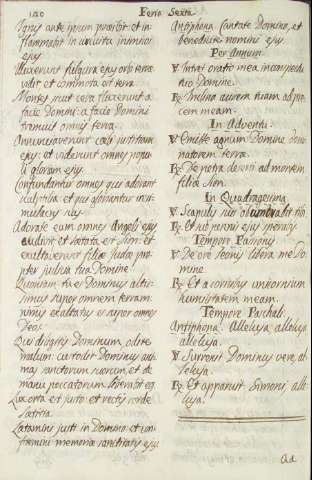 120
Feria Sexta
Ignis ante ipsum præibit: et in
flammabit in circuitu inimicos
ejus
Alluxerunt fulgura ejus orbi terræ:
vidit et commota est terra.
Montes sicut cera fluxerunt a
facie Domini: a facie Domini
omnis terra.
Annunciaverunt cœli justitiam
ejus: et viderunt omnes popu
li gloriam ejus
Confundantur omnes qui adorant
sculptilia: et qui gloriantur in si
mulacris suis
Adorate eum omnes Angeli ejus
audivit et lætata est Sion: et
exultaverunt filiæ Judæ pro
pter judicia tua Domine
Quoniam tu es Dominus altis
simus super omnem terram:
nimis exaltatus es super omnes
Deos
Qui diligitis Dominum, odite
malum: custodit Dominus ani
mas sanctorum suorum, et de
manu peccatorum liberabit eos
Lux orta est justo: et rectis corde
lætitia.
Lætamini justi in Domino: et con
fitemini memoria sanctitatis ejus
Antiphona Cantate Domino, et
benedicite nomini ejus
Per Annum
℣ Intret oratio mea in conspectu
tuo Domine.
℟ Inclina aurem tuam ad pre
cem meam.
In Adventu.
℣ Emitte agnum Domine domi
natorem terræ.
℟ De petra deserti ad montem
filiæ Sion.
In Quadragesima
℣ Scapulis suis obumbrabit tibi
℟ Et sub pennis ejus sperabis
Tempore Passionis
℣ De ore leonis libera me Do
mine.
℟ Et a cornibus unicornium
humilitatem meam.
Tempore Paschali.
Antiphona. Alleluja, alleluja
alleluja.
℣ Surrexit Dominus vere, al
leluja.
℟ Et apparuit Simoni alle
luja.
Ad